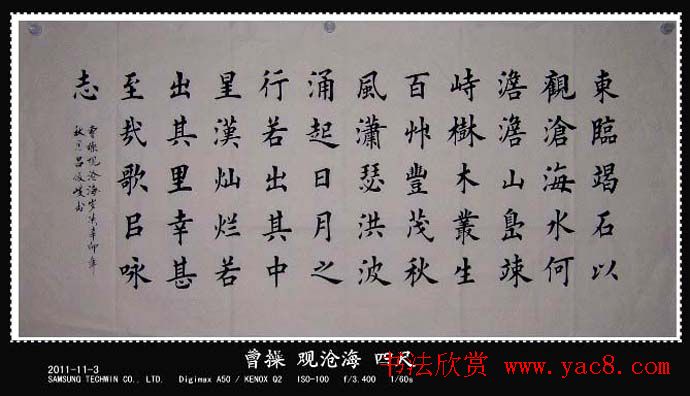 東臨竭石以
觀滄海水何
澹澹山島竦
峙樹木叢生
百艸豐茂秋
風瀟瑟洪波
涌起日月之
行若出其中
星漢灿烂若
出其里幸甚
至哉歌吕咏
志
曹操观沧海岁次辛卯年
秋月吕
曹操 观沧海 四尺
2011-11-3
SAMSUNG TECHWIN CO., LTD. Digimax A50 / KENOX Q2 ISO-100 f/3.400 1/60s
书法欣赏 www.yac8.com